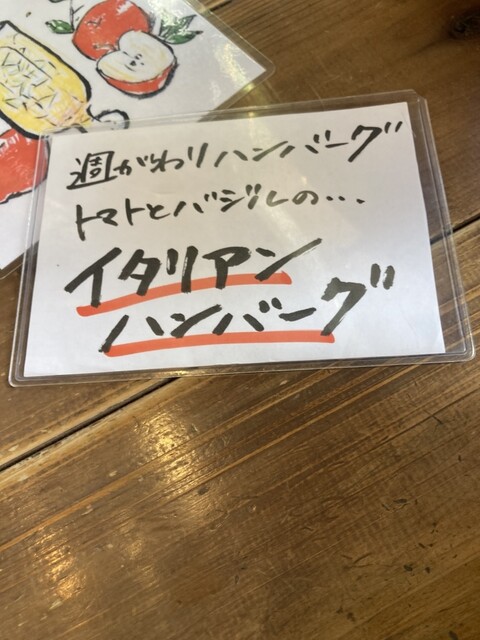 週がわりハンバーグ
トマトとバジルの...
イタリアン
ハンバーグ